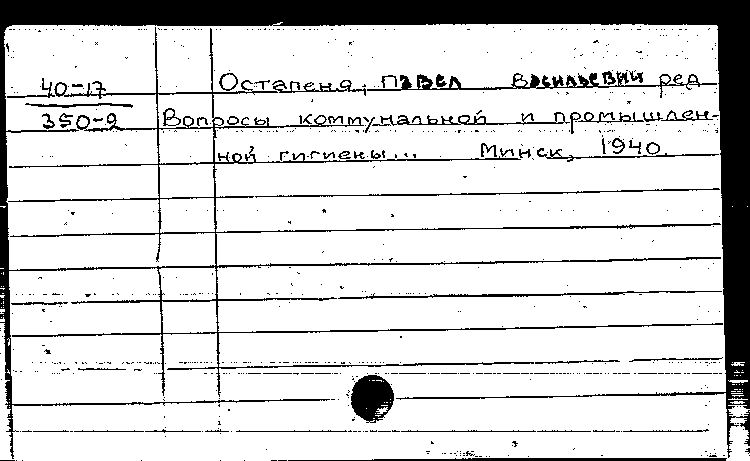 40-17
350-2
Остапеня, Павел Васильевич ред
Вопросы коммунальной и промышлен-
ной гигиены... Минск, 1940.